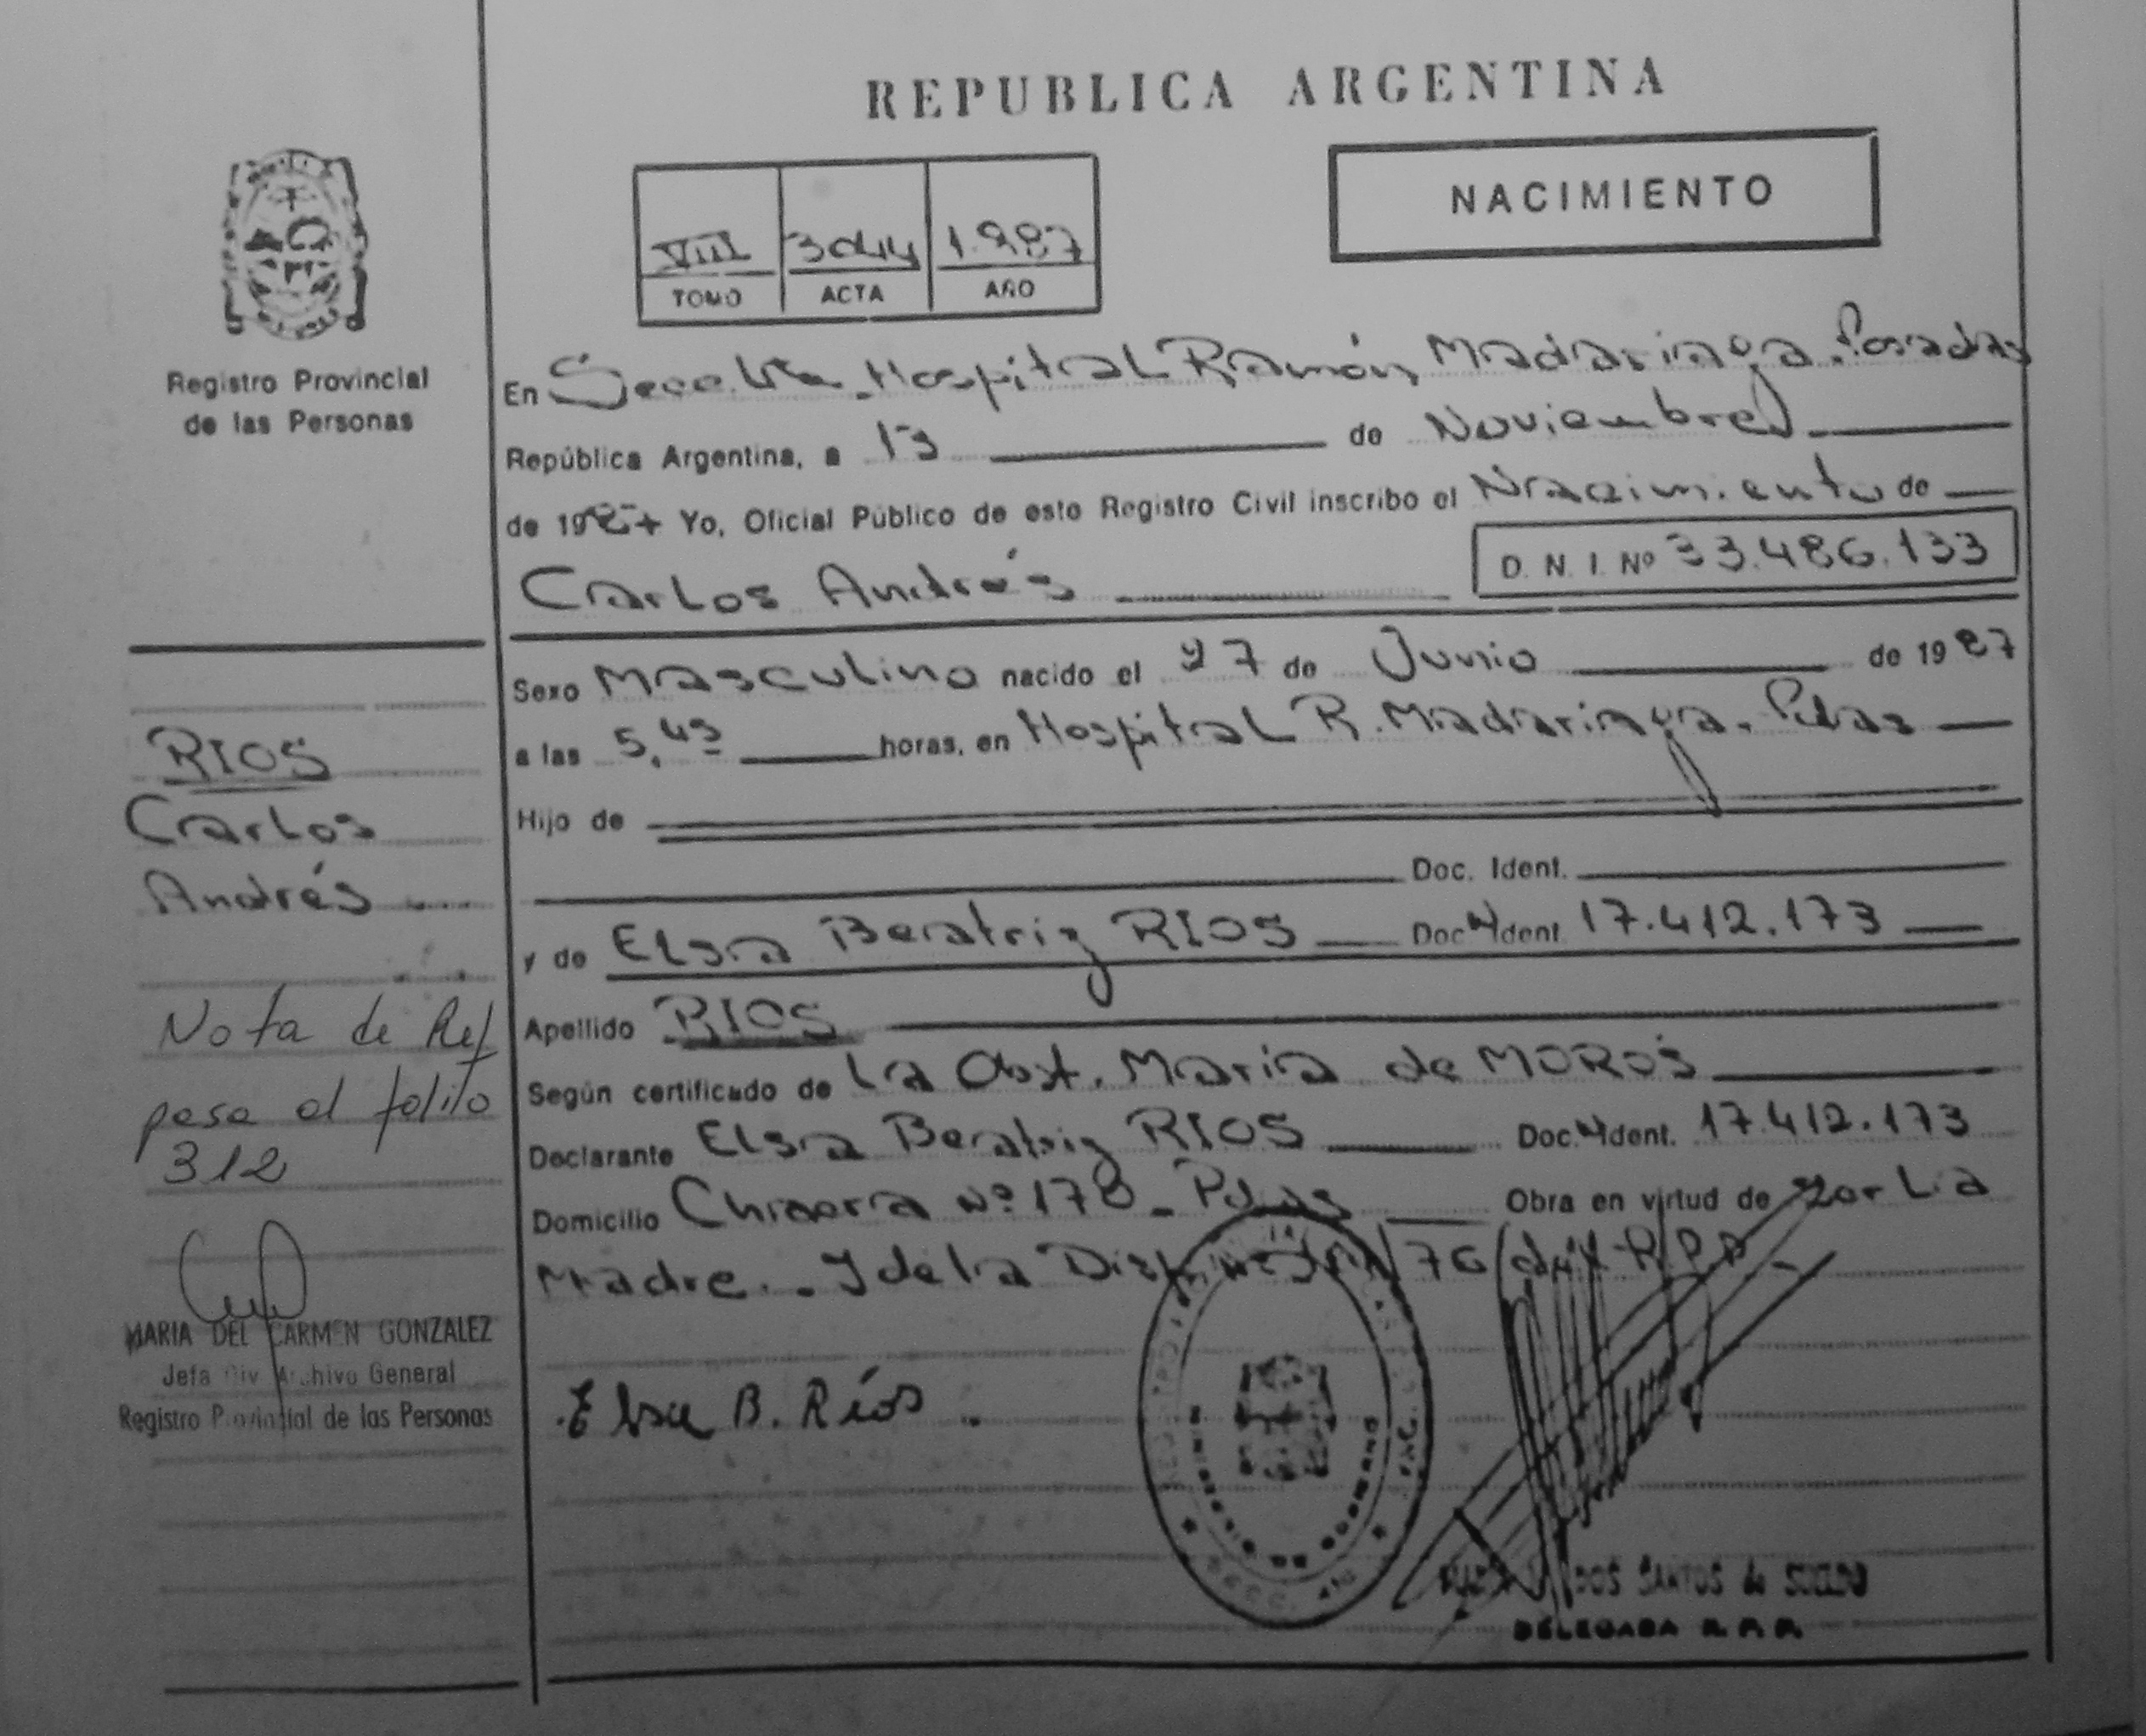 REPUBLICA ARGENTINA
NACIMIENTO
VIII 3044 1.987
TOMO ACTA AÑO
Registro Provincial
de las Personas
En Secc. Hospital Ramón Madariaga. Posadas
República Argentina, a 13 de Noviembre
de 1987 Yo, Oficial Público de este Registro Civil inscribo el Nacimiento de
Carlos Andrés
D. N. I. Nº 33.486.133
Sexo Masculino nacido el 27 de Junio de 1987
a las 5,45 horas, en Hospital R. Madariaga. Pdas
Hijo de
Doc. Ident.
y de Elsa Beatriz RIOS Doc. Ident. 17.412.173
Apellido RIOS
Según certificado de La Obst. Maria de MOROS
Declarante Elsa Beatriz RIOS Doc. Ident. 17.412.173
Domicilio Nº 178 - Pdas Obra en virtud de ser La
Madre. - 76 R.P.P.
Elsa B. Ríos.
RIOS
Carlos
Andrés
Nota de Ref
pasa al folito
312
MARIA DEL CARMEN GONZALEZ
Jefa Div Archivo General
Registro Provincial de las Personas
MINISTERIO DE GOBIERNO
DOS SANTOS de SUELDO
DELEGADA R. P. P.